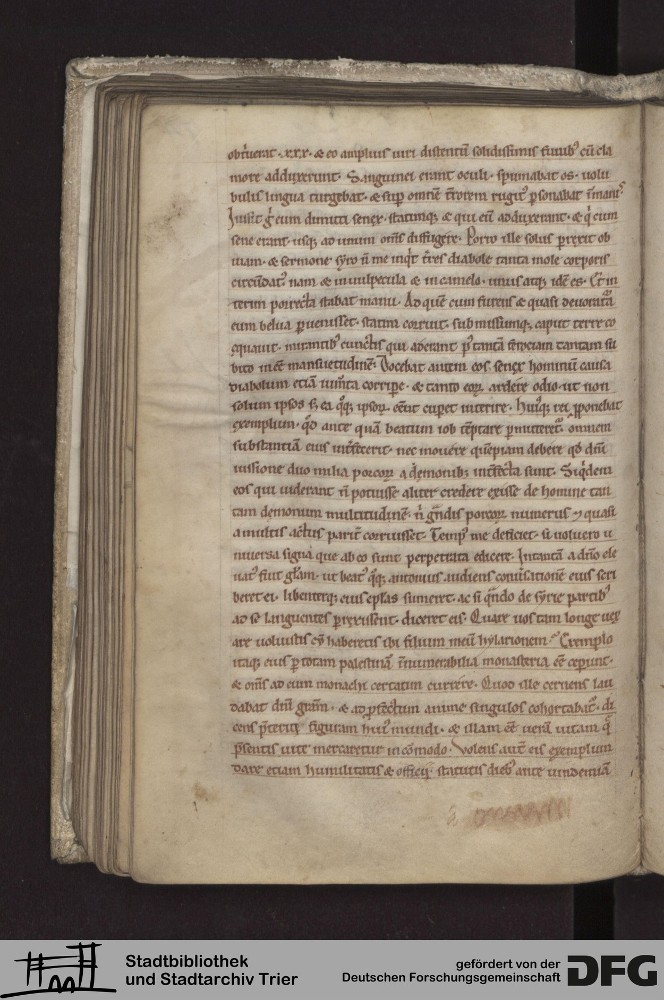 obtriverat .xxx. & eo amplius viri distentum solidissimis funib' cū cla
more adduxerunt. Sanguinei erant oculi. spumabat os. volu
bilis lingua turgebat. & sup omnē t̄rorem rugit' p̄sonabat īmanis.
Jussit g̊ eum dimitti senex. statimq; & qui eū adduxerant. & q̇ cum
sene erant. usq; ad unum om̄s diffugere. Porro ille solus prexit ob
viam. & sermone syro n̄ me inq̇t t̄res diabole tanta mole corporis
circūdat'. nam & in vulpecula & in camelo. unus atq; idē es. Et in
terim porrecta stabat manu. Ad quē cum furens & quasi devoratura
eum belua pvenisset. statim corruit. submissumq; caput terre co
equavit. mirantib' cunctis qui aderant. p' tantā ferociam tantam su
bito inēē mansuetudinē. Docebat autem eos senex hominū causa
diabolum etiā iumta corripe. & tanto eoꝝ ardere odio. ut non
solum ipsos s; ea q̊q; ipsoꝝ eēnt cuperet interire. Huiq; rei p̄ponebat
exemplum. q̊d ante quā beatum iob tēptare pmitteret'. omnem
substantiā eius int̄fecerit. nec movere quēpiam debere qd dn̄i
iussione duo milia porcoꝝ a demonib; int̄fecta sunt. Siq̇dem
eos qui viderant n̄ potuisse aliter credere exisse de homine tan
tam demonum multitudinē. n̄ grandis porcoꝝ numerus & quasi
a multis act' parit̄ corruisset. Temp' me deficiet. si voluero u
niversa signa que ab eo sunt perpetrata edicere. Intantā a dn̄o ele
vat' fuit glam. ut beat' q̊q; antonius audiens convsationē eius scri
beret ei. libenterq; eius ep̄las sumeret. ac si q̄ndo de syrie partib'
ad se languentes prexissent. diceret eis. Quare vos tam longe vex
are voluistis cū haberetis ibi filium meū hylarionem. Exemplo
itaq; eius p totam palestinā īnumerabilia monasteria ēē ceperunt.
& om̄s ad eum monachi certatim currere. Quod ille cernens lau
dabat dn̄i grām. & ad pfectum anime singulos cohortabat'. di
cens pterire figuram hui' mundi. & illam ēē verā vitam q̄
p̄sentis vite mercaretur incōmodo. Volens autē eis exemplum
dare etiam humilitatis & officii. statutis dieb' ante vindemiā
Stadtbibliothek
und Stadtarchiv Trier
gefördert von der
Deutschen Forschungsgemeinschaft
DFG